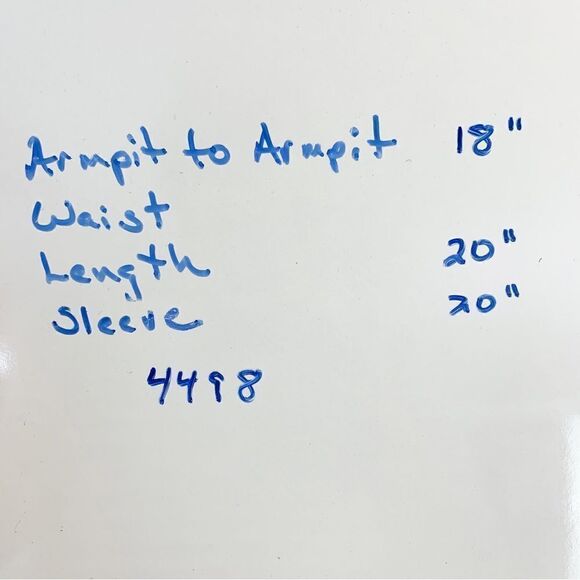 Armpit to Armpit 18"
Waist
Length 20"
Sleeve 20"
4498